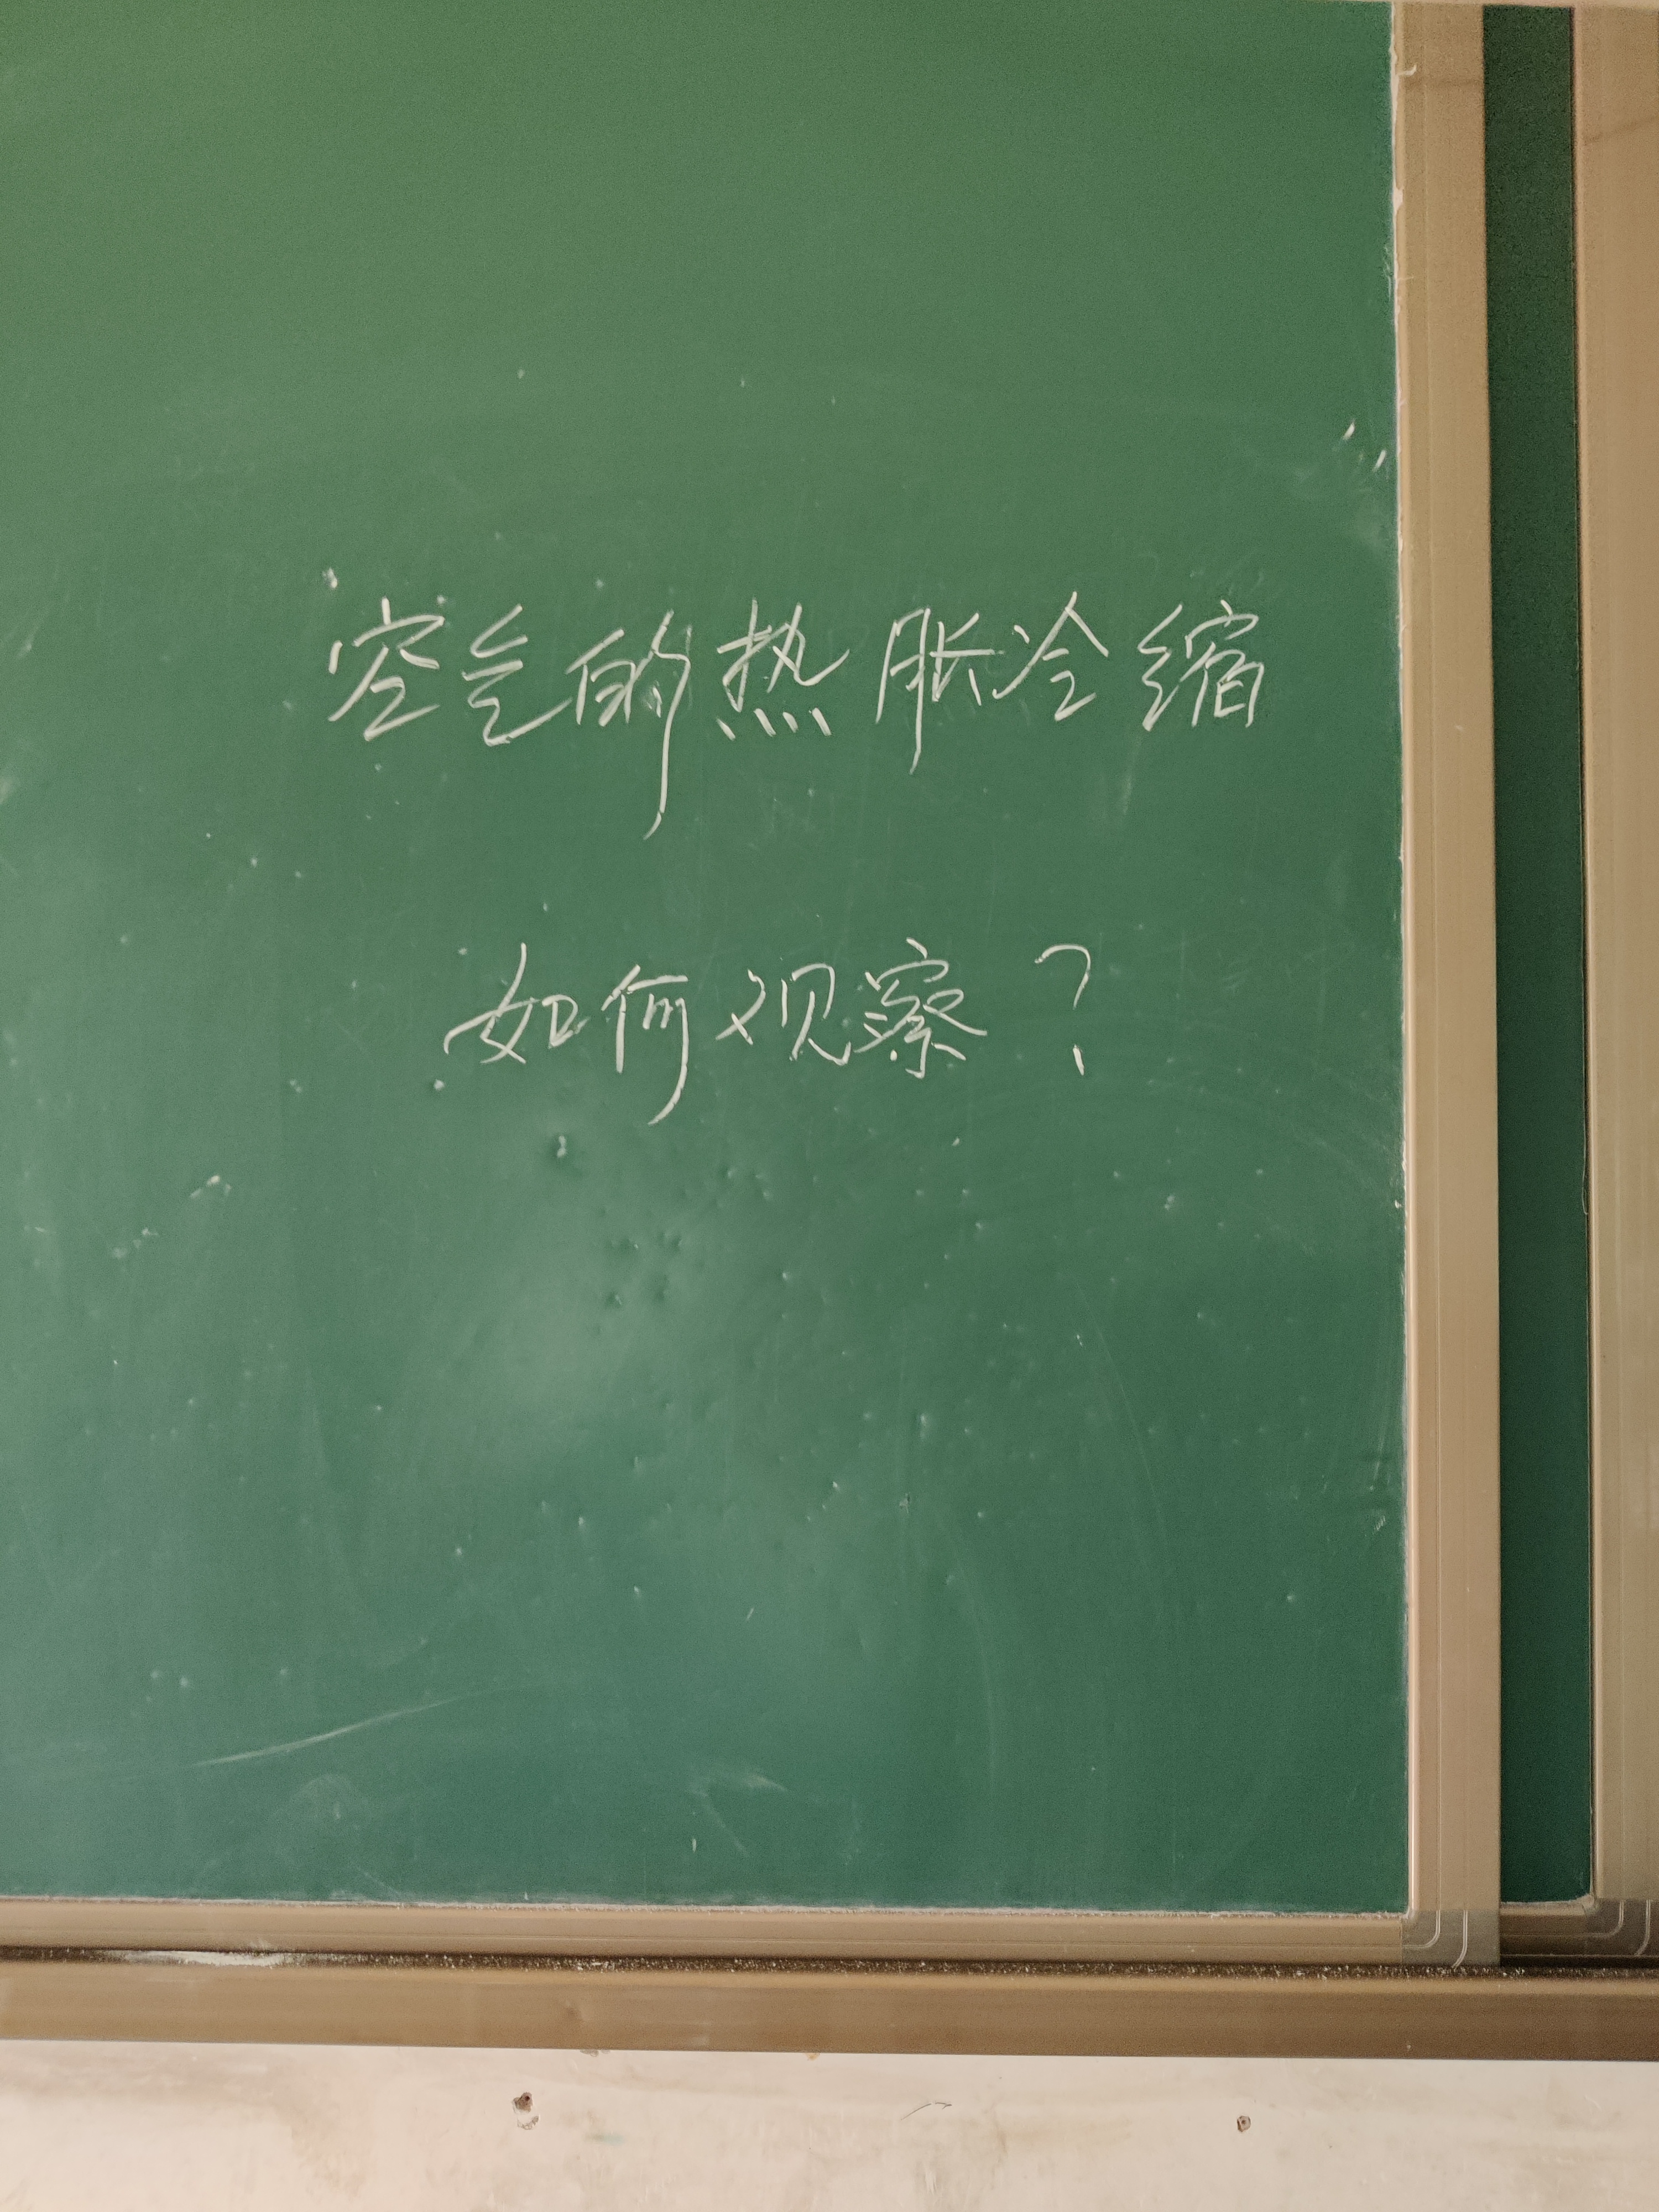 空气的热胀冷缩
如何观察？